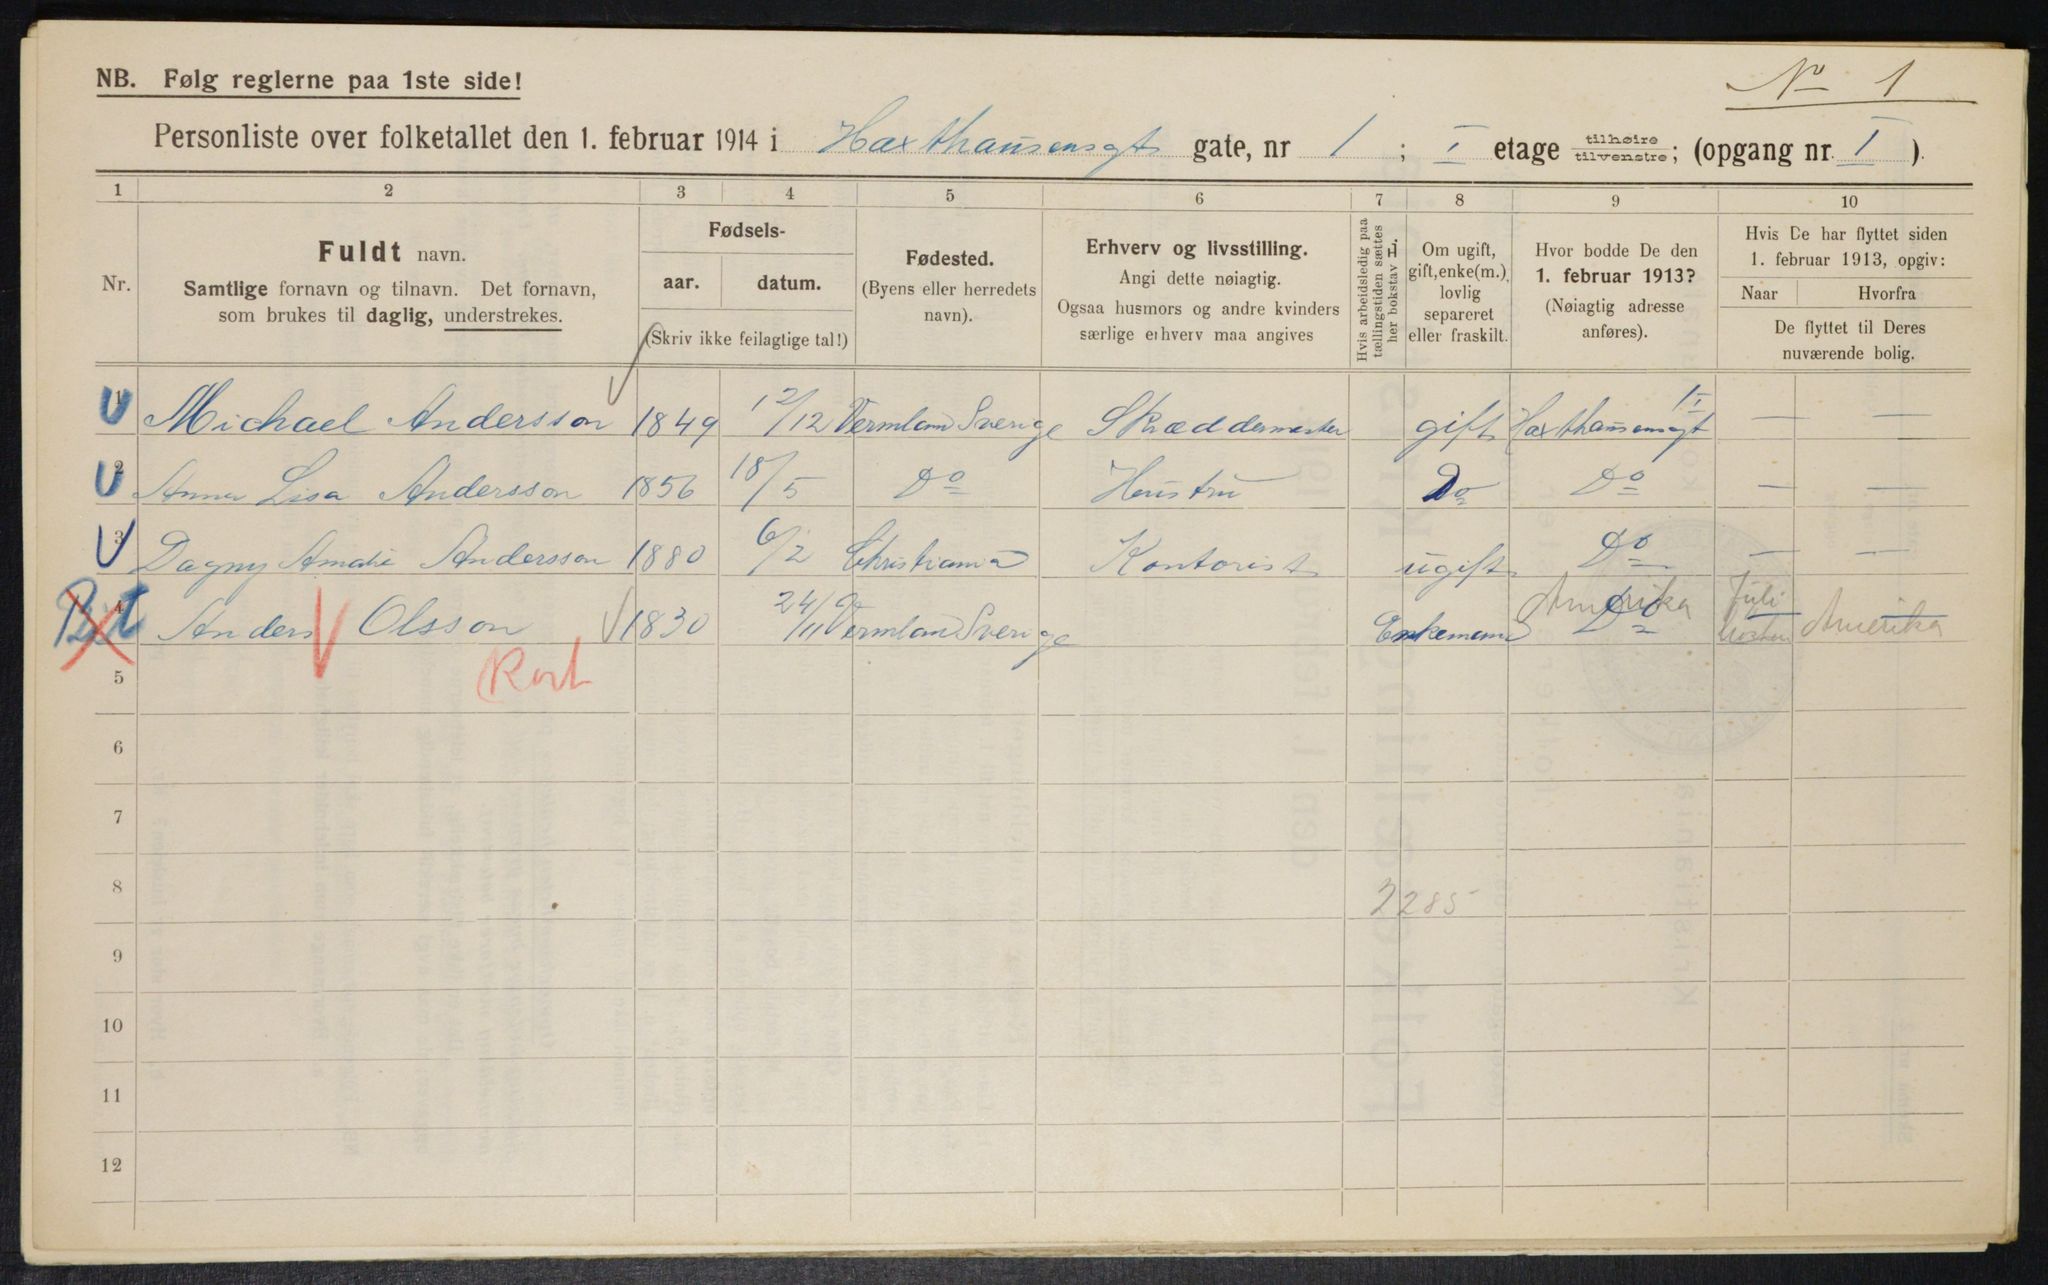 No 1
NB. Følg reglerne paa 1ste side!
Personliste over folketallet den 1. februar 1914 i Haxthausensgt gate, nr 1 ; I etage tilhøire tilvenstre ; (opgang nr. I ).
1 2 3 4 5 6 7 8 9 10
Nr.
Fuldt navn.
Samtlige fornavn og tilnavn. Det fornavn,
som brukes til daglig, understrekes.
Fødsels-
aar. datum.
(Skriv ikke feilagtige tal!)
Fødested.
(Byens eller herredets
navn).
Erhverv og livsstilling.
Angi dette nøiagtig.
Ogsaa husmors og andre kvinders
særlige erhverv maa angives
Hvis arbeidsledig paa
tællingstiden sættes
her bokstav H.
Om ugift,
gift, enke(m.),
lovlig
separeret
eller fraskilt.
Hvor bodde De den
1. februar 1913?
(Nøiagtig adresse
anføres).
Hvis De har flyttet siden
1. februar 1913, opgiv:
Naar Hvorfra
De flyttet til Deres
nuværende bolig.
1 Michael Andersson 1849 12/12 Vermland Sverige Skræddermester gift Haxthausensgt 1 I — —
2 Anna Lisa Andersson 1856 18/5 Do Hustru Do Do — —
3 Dagny Amalie Andersson 1880 6/2 Christiania Kontorist ugift Do — —
4 Anders Olsson 1830 24/11 Vermland Sverige Enkemand Do Amerika Juli Amerika
Kort
5
6
7
8 2285
9
10
11
12